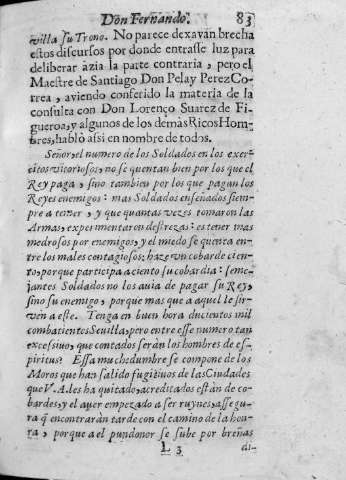 Don Fernando. 83
villa su Trono. No parece dexavan brecha
estos discursos por donde entrasse luz para
deliberar àzia la parte contraria, pero el
Maestre de Santiago Don Pelay Perez Co-
rrea, aviendo conferido la materia de la
consulta con Don Lorenço Suarez de Fi-
gueroa, y algunos de los demàs Ricos Hom-
bres, hablò assi en nombre de todos.
Señor, el numero de los Soldados en los exer-
citos vitoriosos, no se quentan bien por los que el
Rey paga, sino tambien por los que pagan los
Reyes enemigos: mas Soldados enseñados siem-
pre a temer, y que quantas vezes tomaron las
Armas, experimentaron destrezas: es tener mas
medrosos por enemigos, y el miedo se quenta en-
tre los males contagiosos; haze un cobarde cien-
to, porque participa a ciento su cobardia: seme-
jantes Soldados no los avia de pagar su Rey,
sino su enemigo, porque mas que a aquel le sir-
ven a este. Tenga en buen hora ducientos mil
combatientes Sevilla, pero entre esse numero tan
excessivo, que contados seràn los hombres de es-
piritus? Essa muchedumbre se compone de los
Moros que han salido fugitivos de las Ciudades
que V.A. les ha quitado, acreditados estàn de co-
bardes, y el aver empezado a ser ruynes, assegu-
ra q̃ encontraràn tarde con el camino de la hon-
ra, porque a el pundonor se sube por breñas
L 3 di-